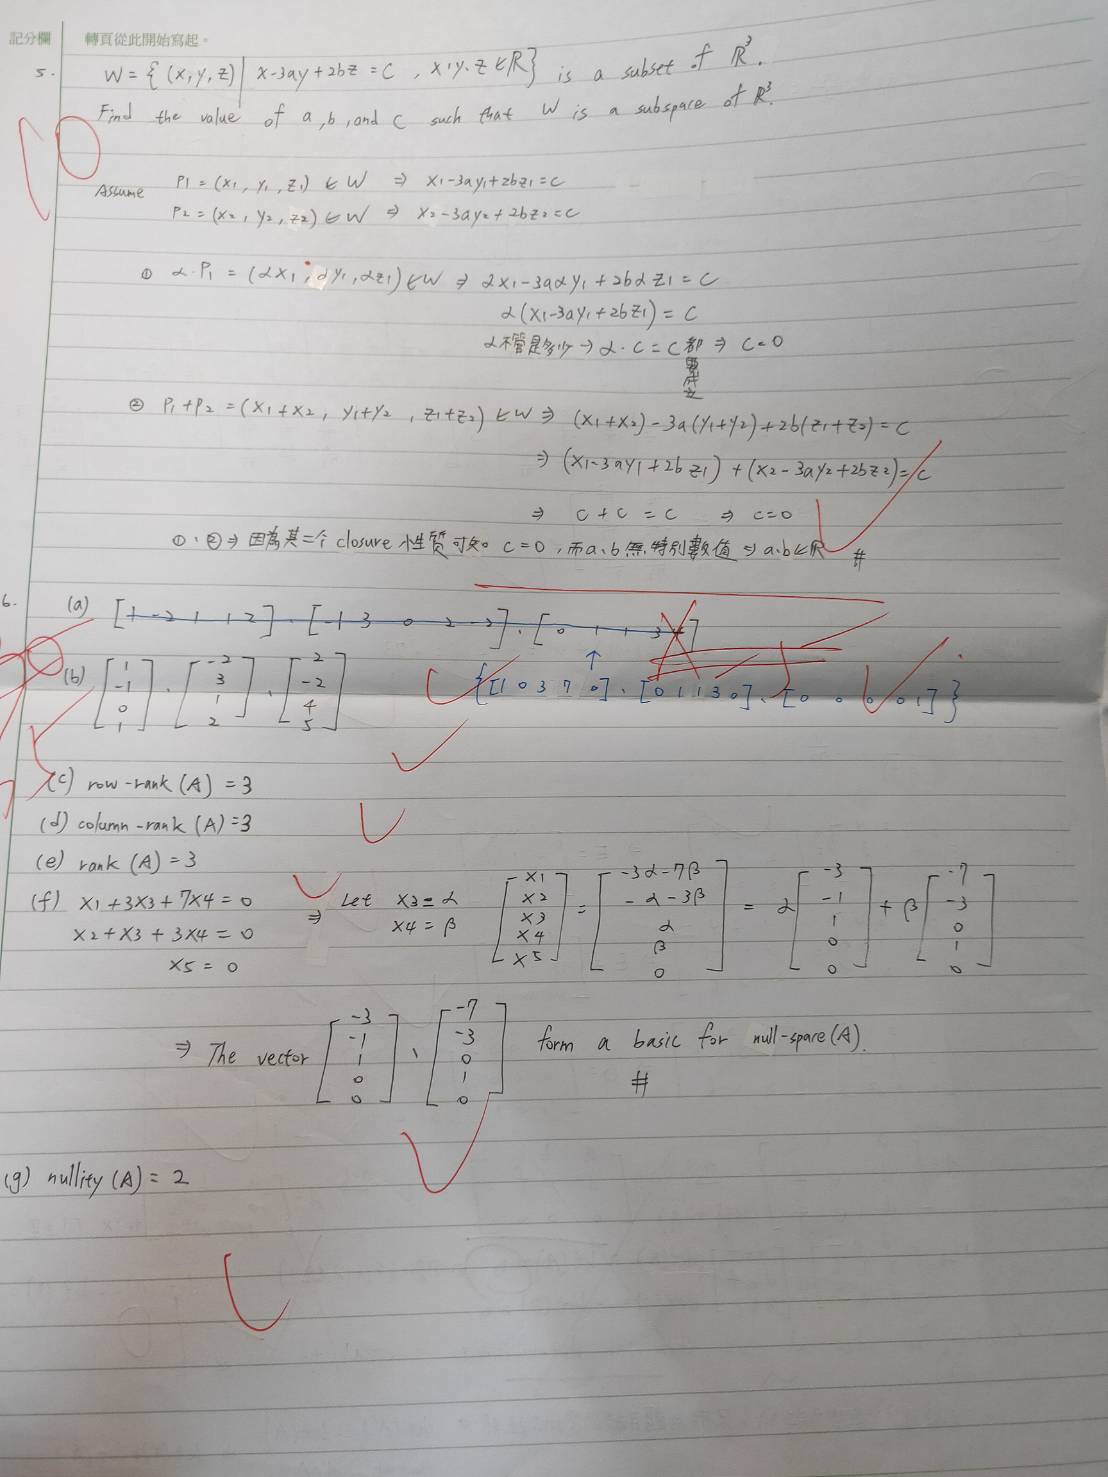 記分欄 轉頁從此開始寫起。
5. W = { (x,y,z) | x-3ay+2bz = C , x,y,z ∈ R } is a subset of R³.
Find the value of a, b, and c such that W is a subspace of R³.
10
Assume P1 = (x1, y1, z1) ∈ W ⇒ x1-3ay1+2bz1=c
P2 = (x2, y2, z2) ∈ W ⇒ x2-3ay2+2bz2=c
① α·P1 = (αx1, αy1, αz1) ∈ W ⇒ αx1-3aαy1+2bαz1 = C
α(x1-3ay1+2bz1) = C
α不管是多少 → α·C = C 都要成立 ⇒ C=0
② P1+P2 = (x1+x2, y1+y2, z1+z2) ∈ W ⇒ (x1+x2)-3a(y1+y2)+2b(z1+z2) = C
⇒ (x1-3ay1+2bz1) + (x2-3ay2+2bz2) = C
⇒ C+C = C ⇒ C=0
①、②⇒ 因為其二个 closure 性質可知 C=0, 而a、b無特別數值 ⇒ a、b∈R #
6. (a) [1 -2 1 1 2]、[-1 3 0 2 -2]、[0 1 1 3 4]
↑
{[1 0 3 7 0]、[0 1 1 3 0]、[0 0 0 0 1]}
(b) [1 -1 0 1]、[-2 3 1 2]、[2 -2 4 5]
(c) row-rank (A) = 3
(d) column-rank (A) = 3
(e) rank (A) = 3
(f) x1+3x3+7x4=0
x2+x3+3x4=0
x5=0
⇒ Let x3=α
x4=β
[x1 x2 x3 x4 x5] = [-3α-7β -α-3β α β 0] = α[-3 -1 1 0 0] + β[-7 -3 0 1 0]
⇒ The vector [-3 -1 1 0 0]、[-7 -3 0 1 0] form a basic for null-space(A).
#
(g) nullity (A) = 2